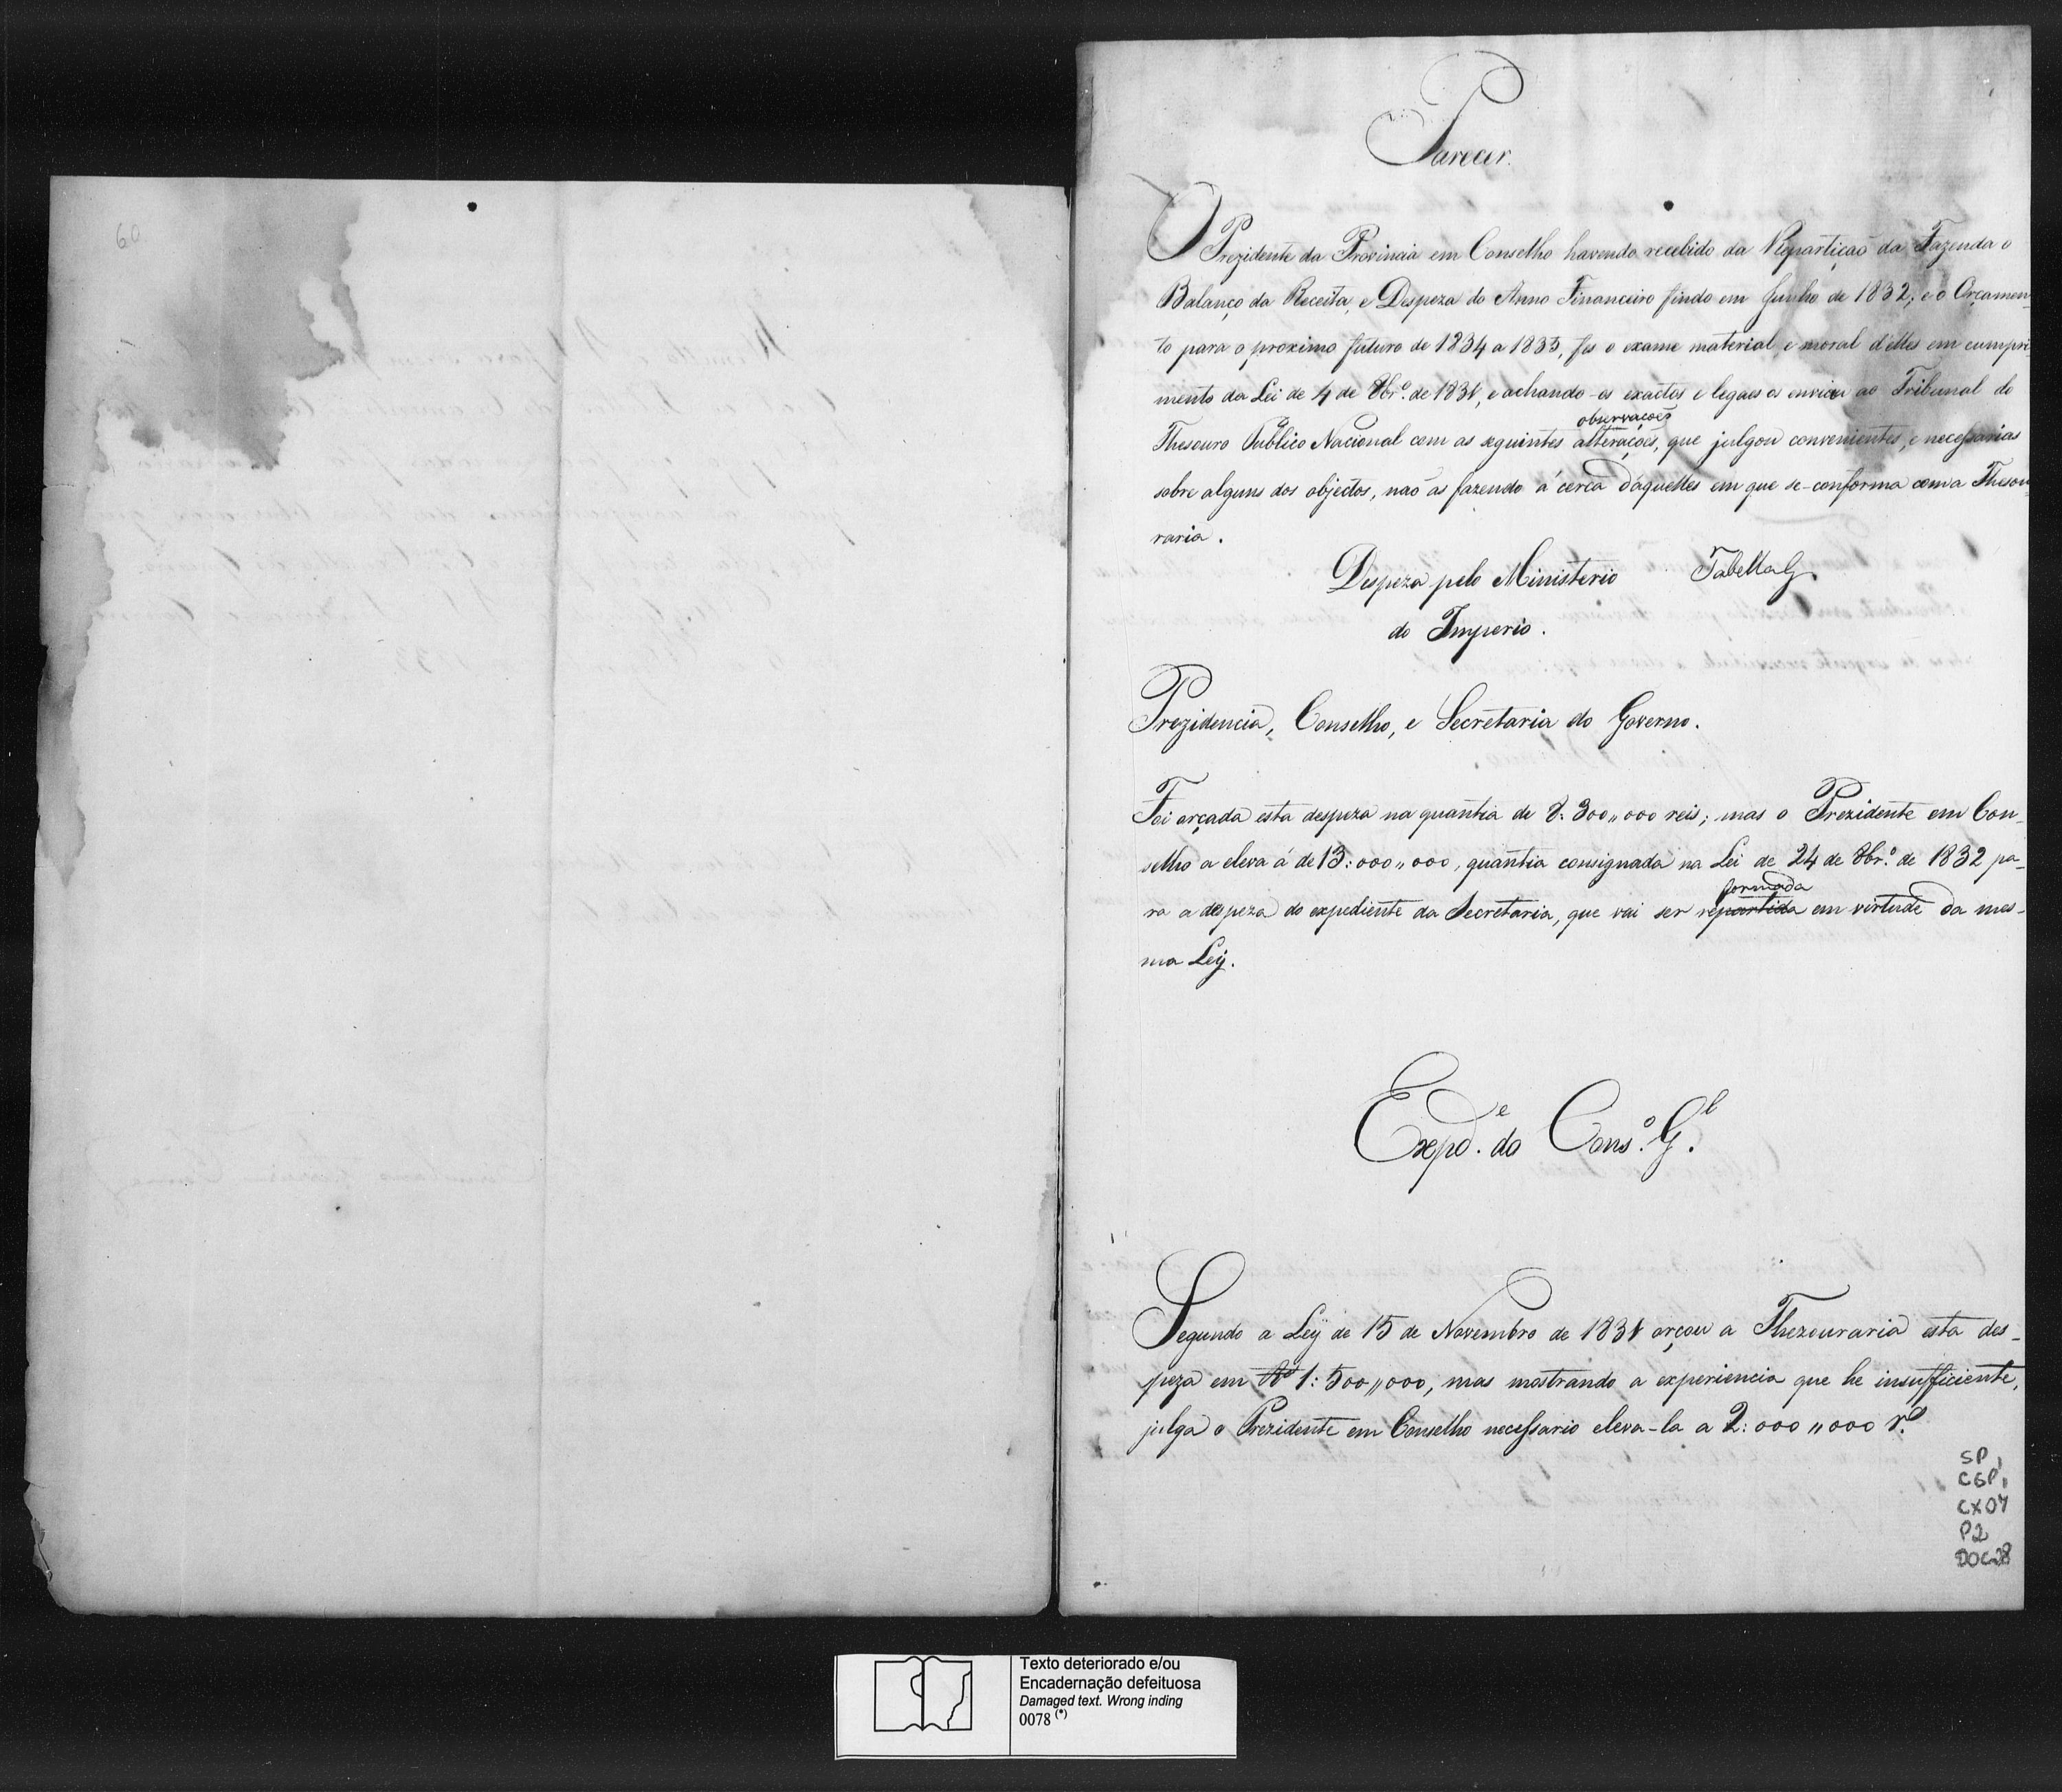 60
Parecer.
O Prezidente da Provincia em Conselho havendo recebido da Repartiçaõ da Fazenda o
Balanço da Receita, e Despeza do Anno Financeiro findo em Junho de 1832, e o Orçamen-
to para o proximo futuro de 1834 a 1835, fes o exame material, e moral d'elles em cumpri-
mento da Lei de 4 de 8br.º de 1831, e achando-os exactos e legaes os enviou ao Tribunal do
observaçoẽs
Thesouro Publico Nacional com as seguintes alteraçoẽs, que julgou convenientes, e necessarias
sobre alguns dos objectos, naõ as fazendo á cerca daquelles em que se-conforma com a Thesou-
raria.
Despeza pelo Ministerio Tabella G.
do Imperio.
Prezidencia, Conselho, e Secretaria do Governo.
Foi orçada esta despeza na quantia de 8:300,,000 reis; mas o Prezidente em Con-
selho a eleva á de 13:000,,000, quantia consignada na Lei de 24 de 8br.º de 1832 pa-
formada
ra a despeza do expediente da Secretaria, que vai ser repartida em virtude da mes-
ma Ley.
Exped.e do Cons.º G.l
Segundo a Ley de 15 de Novembro de 1831 orçou a Thezouraria esta des-
peza em Rs 1:500,,000, mas mostrando a experiencia que he insufficiente,
julga o Prezidente em Conselho necessario eleva-la a 2:000,,000 r.s
SP,
CGP,
CX07
P2
DOC28
Texto deteriorado e/ou
Encadernação defeituosa
Damaged text. Wrong inding
0078 (*)